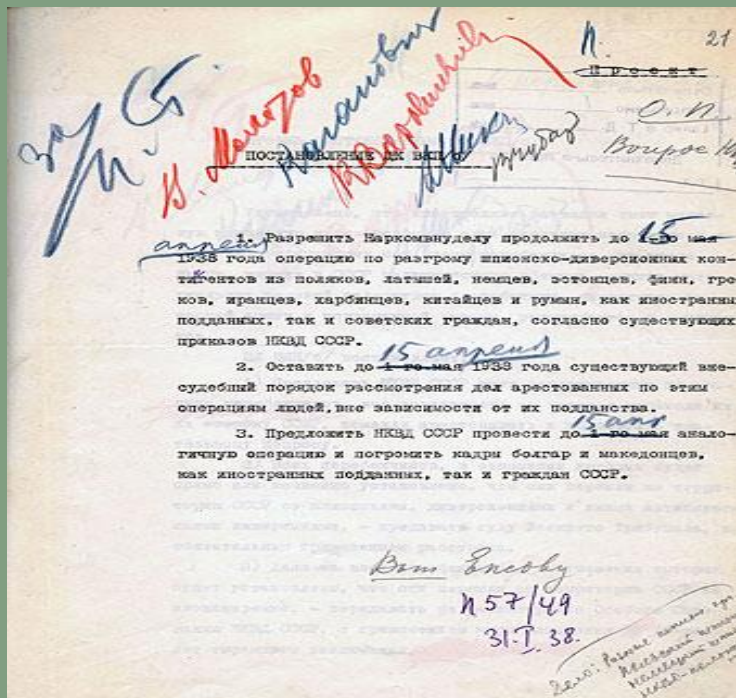 П. 21
Проект
за И. Ст.
В. Молотов
Каганович
КВорошилов
АМикоян
ВЧубарь
О.П.
Вопрос НК
ПОСТАНОВЛЕНИЕ ЦК ВКП/б/
1. Разрешить Наркомвнуделу продолжить до 1-го мая 15
апреля
1938 года операцию по разгрому шпионско-диверсионных кон-
тингентов из поляков, латышей, немцев, эстонцев, финн, гре
ков, иранцев, харбинцев, китайцев и румын, как иностранны
подданных, так и советских граждан, согласно существующих
приказов НКВД СССР.
15 апреля
2. Оставить до 1-го мая 1938 года существующий вне-
судебный порядок рассмотрения дел арестованных по этим
операциям людей,вне зависимости от их подданства.
15 апр
3. Предложить НКВД СССР провести до 1-го мая анало-
гичную операцию и погромить кадры болгар и македонцев,
как иностранных подданных, так и граждан СССР.
Вып Ежову
П 57/49
31.I.38.